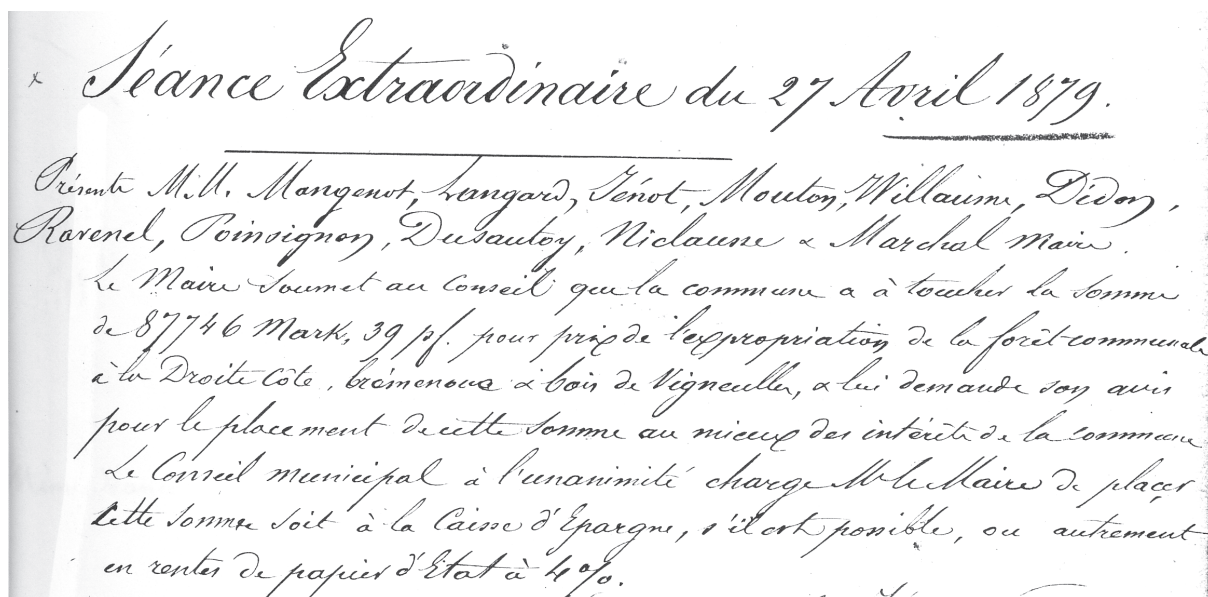 Séance Extraordinaire du 27 Avril 1879.
Présents M.M. Mangenot, Langard, Jénot, Mouton, Willaume, Didon,
Ravenel, Poinsignon, Dusautoy, Niclausse & Marchal Maire.
Le Maire soumet au Conseil que la commune a à toucher la somme
de 87746 Mark, 39 pf. pour prix de l'expropriation de la forêt communale
à la Droite Côte, & bois de Vigneulles, & lui demande son avis
pour le placement de cette somme au mieux des intérêts de la commune
Le Conseil municipal à l'unanimité charge Mr le Maire de placer
cette somme soit à la Caisse d'Epargne, s'il est possible, ou autrement
en rentes de papier d'Etat à 4%.